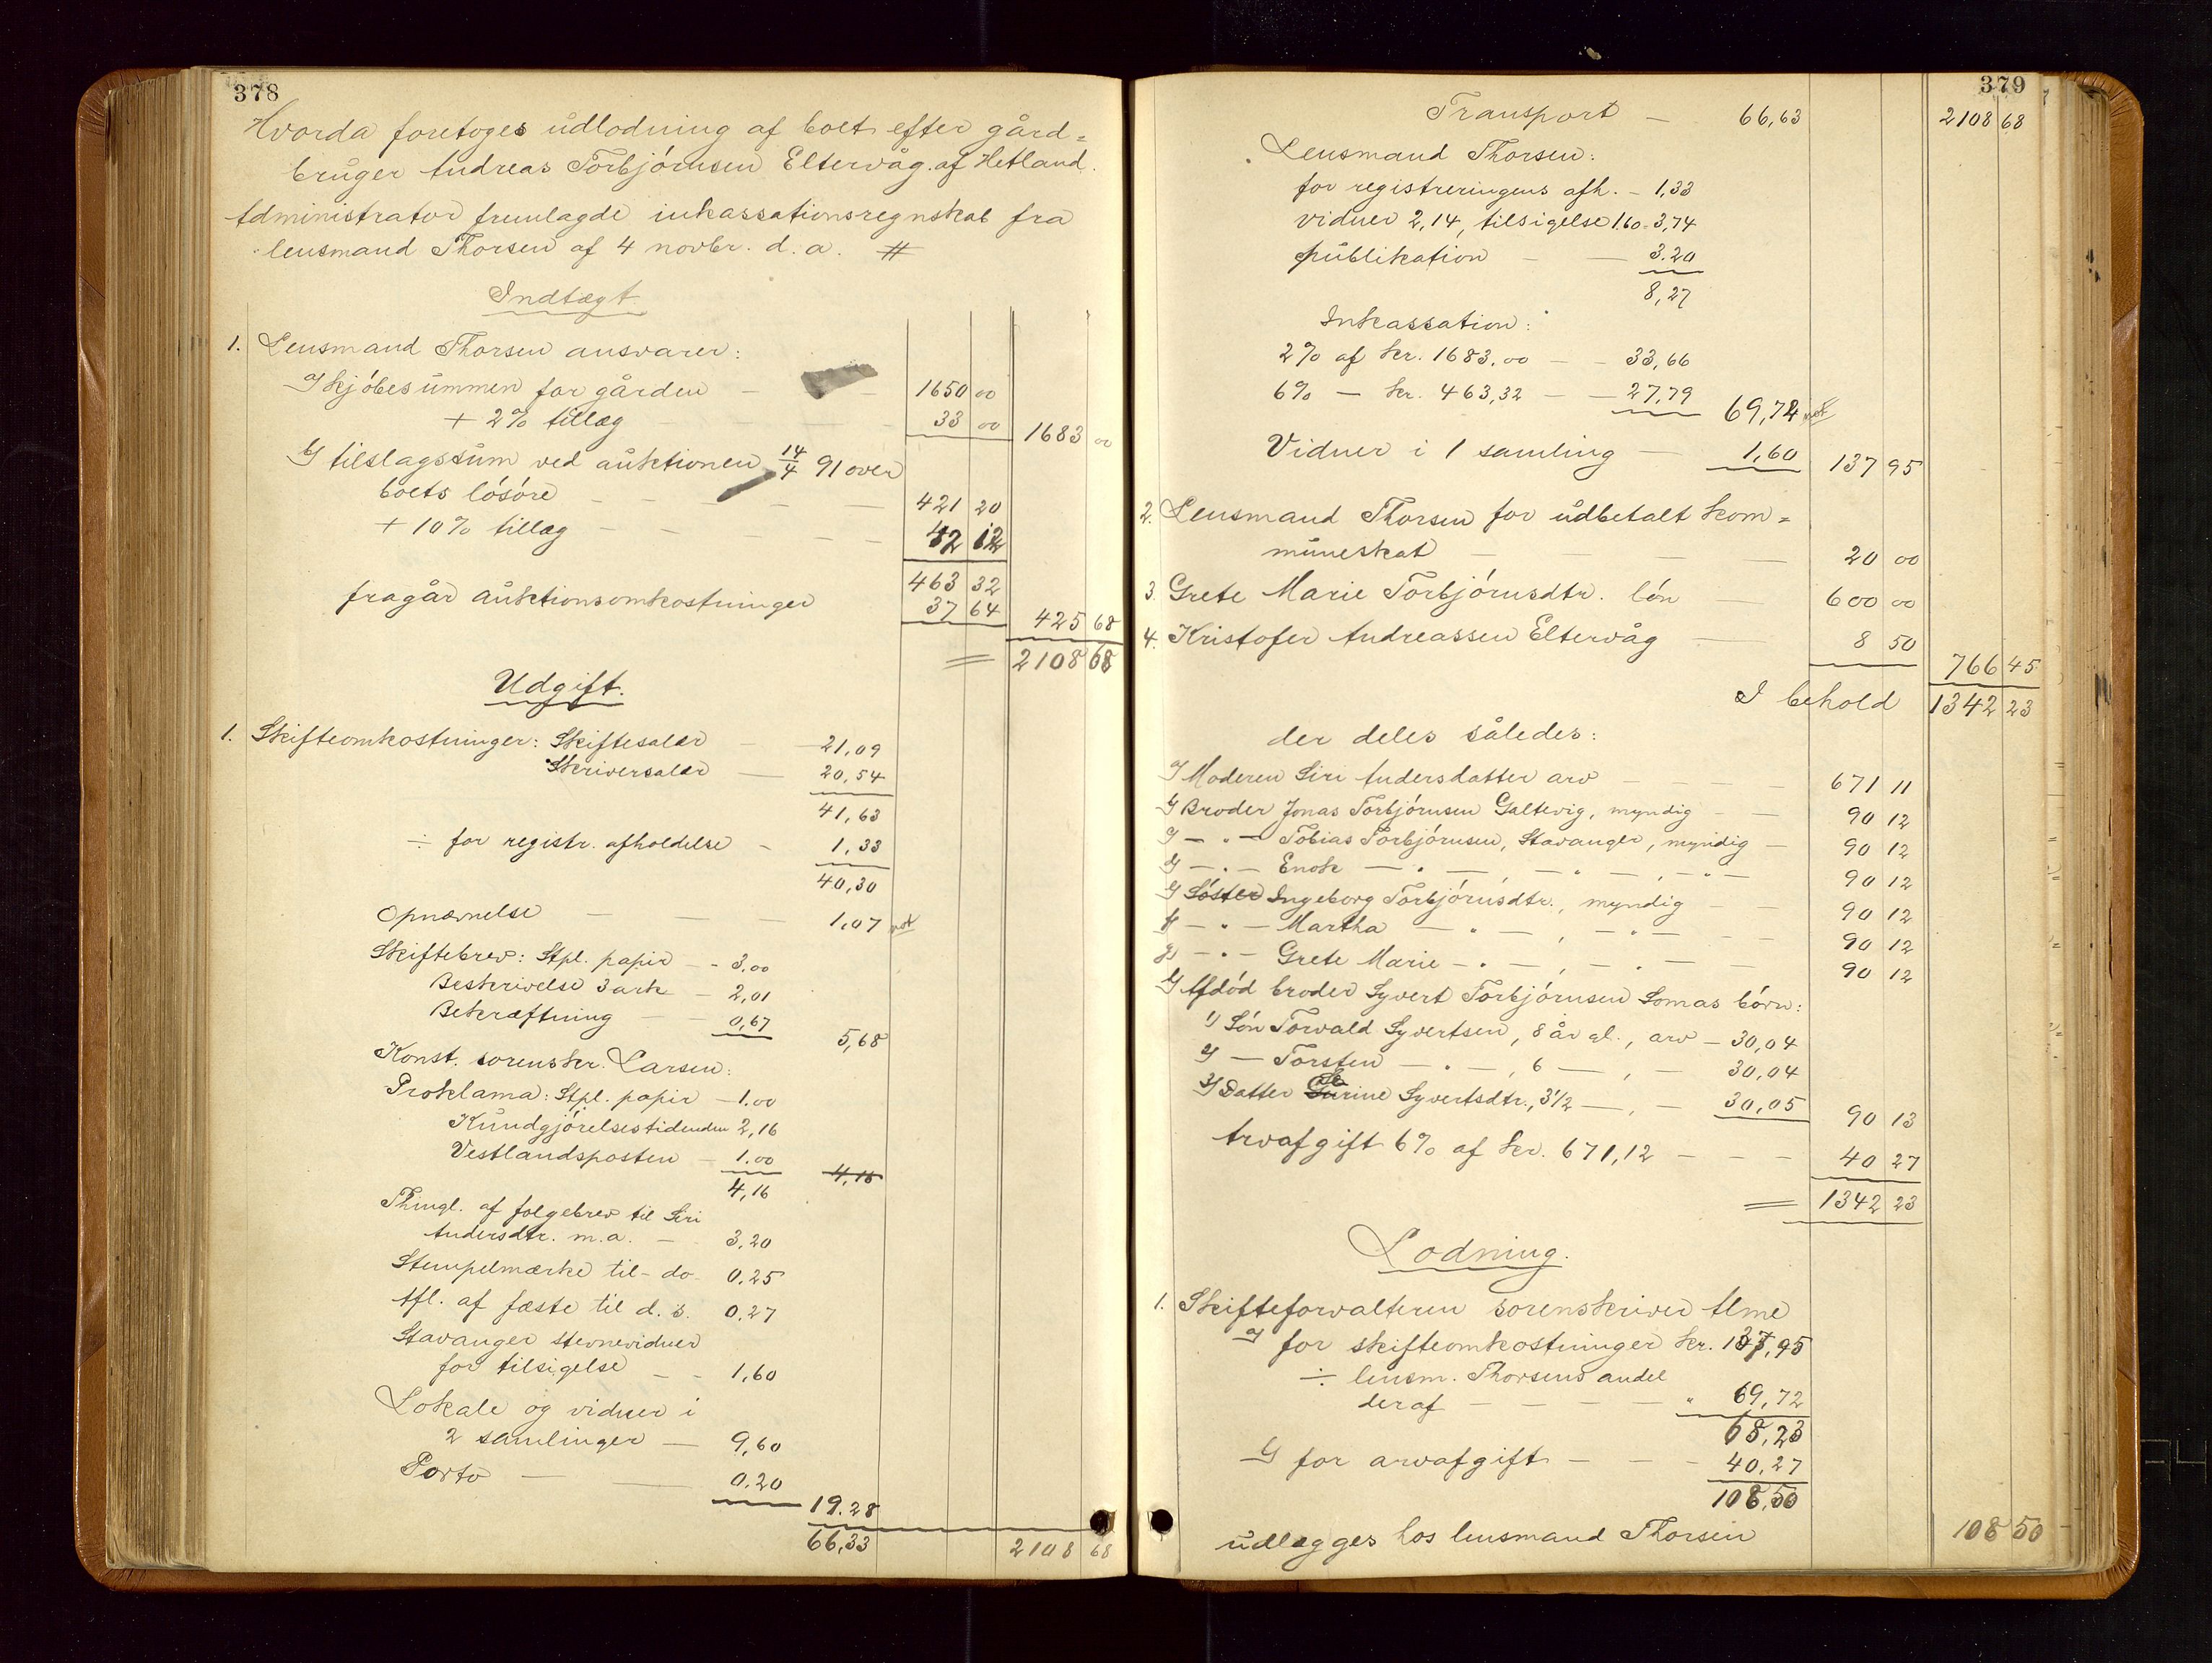 378
Hvorda foretoges udlodning af boet efter gård=
bruger Andreas Torbjørnsen Eltervåg af Hetland.
Administrator fremlagde inkassationsregnskab fra
lensmand Thorsen af 4 novbr. d. a. #
Indtægt.
1. Lensmand Thorsen ansvarer:
1) kjøbesummen for gården — — 1650 00
+ 2% tillæg — — — 33 00 1683 00
2) tilslagssum ved auktionen 14/4 91 over
boets løsøre — — — — 421 20
+ 10% tillæg — — — — 42 12
463 32
fragår auktionsomkostninger 37 64 425 68
= 2108 68
Udgift.
1. Skifteomkostninger: Skiftesalær — 21,09
Skriversalær — 20,54
41,63
÷ for registr. afholdelse - 1,33
40,30
Opnævnelse — — — 1,07
Skiftebrev: Stpl. papir - - 3,00
Beskrivelse 3 ark - 2,01
Bekræftning — - 0,67 5,68
Konst. sorenskr. Larsen:
Proklama: Stpl. papir - 1.00
Kundgjørelsestidenden 2,16
Vestlandsposten - 1.00
4,16 4,16
Thingl. af følgebrev til Siri
Andersdtr. m.a. — 3,20
Stempelmærke til - do 0.25
Afl. af fæste til d. s. 0,27
Stavanger stevnevidner
for tilsigelse — - 1,60
Lokale og vidner i
2 samlinger — 9,60
Porto — — 0.20
19.28
66,33 2108 68
379
Transport — 66,63 2108 68
Lensmand Thorsen:
for registreringens afh. - 1,33
vidner 2,14, tilsigelse 1.60 - 3,74
publikation — — 3.20
8,27
Inkassation:
2% af kr. 1683.00 — - 33,66
6% — kr. 463,32 — - 27,79 69,72
Vidner i 1 samling — 1,60 137 95
2. Lensmand Thorsen for udbetalt kom=
muneskat — — — 20 00
3. Grete Marie Torbjørnsdtr. løn — 600 00
4. Kristofer Andreassen Eltervåg — 8 50
766 45
I behold 1342 23
der deles således:
1) Moderen Siri Andersdatter arv — — — 671 11
2) Broder Jonas Torbjørnsen Galtevig, myndig — — 90 12
3) — " — Tobias Torbjørnsen, Stavanger, myndig — 90 12
4) — " — Enok — " — , — " — , — " — 90 12
5) Søster Ingeborg Torbjørnsdtr., myndig — — 90 12
6) — " — Martha — " — , — " — — — 90 12
7) — " — Grete Marie — " — , — " — — 90 12
8) Afdød broder Syvert Torbjørnsen Somas børn:
1) Søn Torvald Syvertsen, 8 år gl., arv — 30,04
2) — Torsten — " — , 6 — , — 30,04
3) Datter Serine Syvertsdtr., 3½ — , — 30,05 90 13
Arvafgift 6% af kr. 671,12 — — — 40 27
= 1342 23
Lodning.
1. Skifteforvalteren sorenskriver Alme
1) for skifteomkostninger kr. 137,95
÷ lensm. Thorsens andel
deraf — — — — " 69,72
68,23
2) for arvafgift — — — 40,27
108,50
udlægges hos lensmand Thorsen 108 50